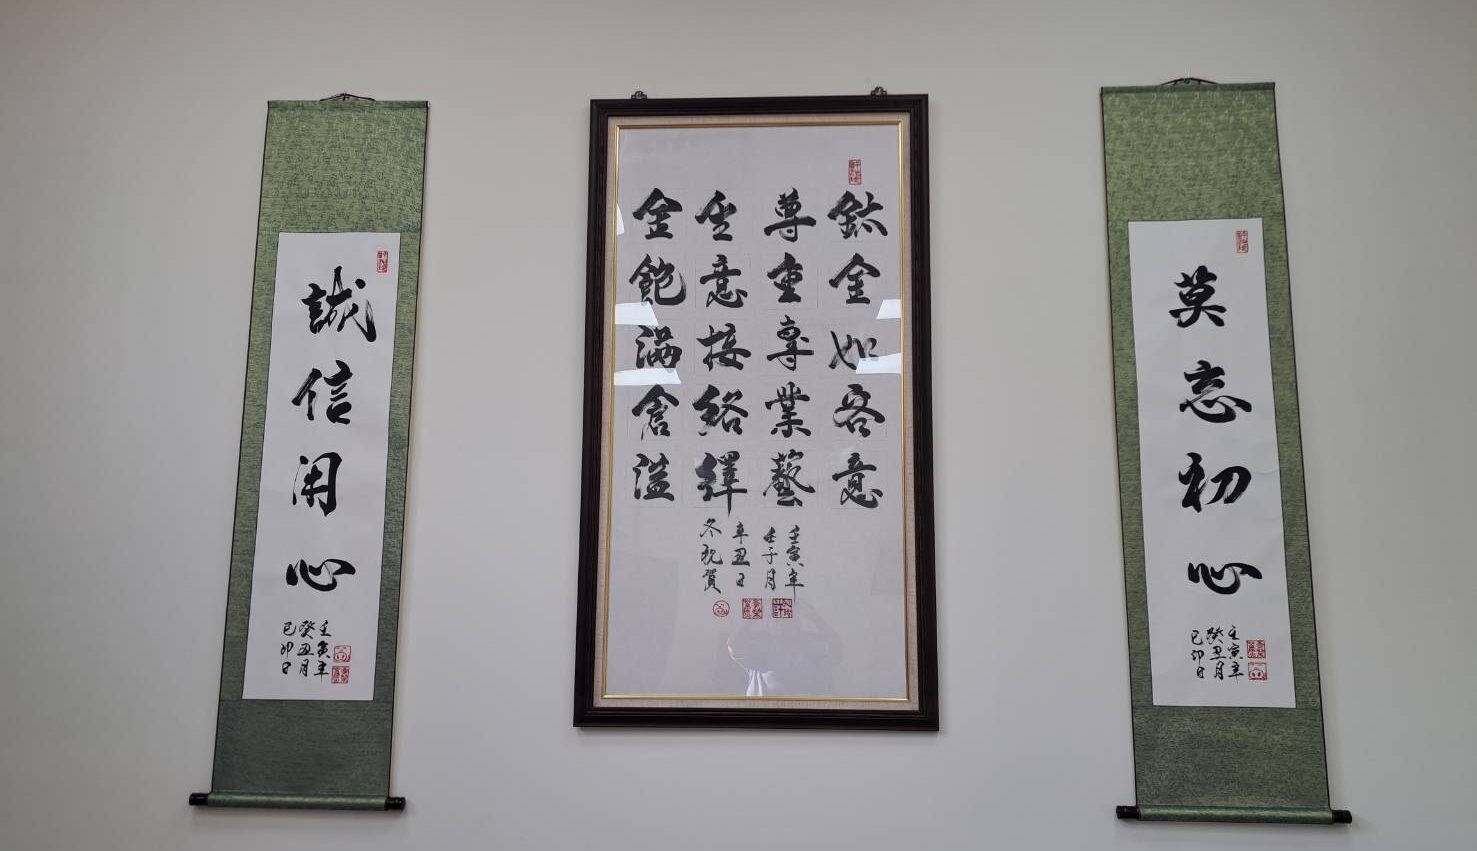 莫忘初心
壬寅年
癸丑月
己卯日
鈦金如客意
尊重專業藝
生意接絡繹
金飽滿倉溢
壬寅年
壬子月
辛丑日
冬祝賀
誠信用心
壬寅年
癸丑月
己卯日